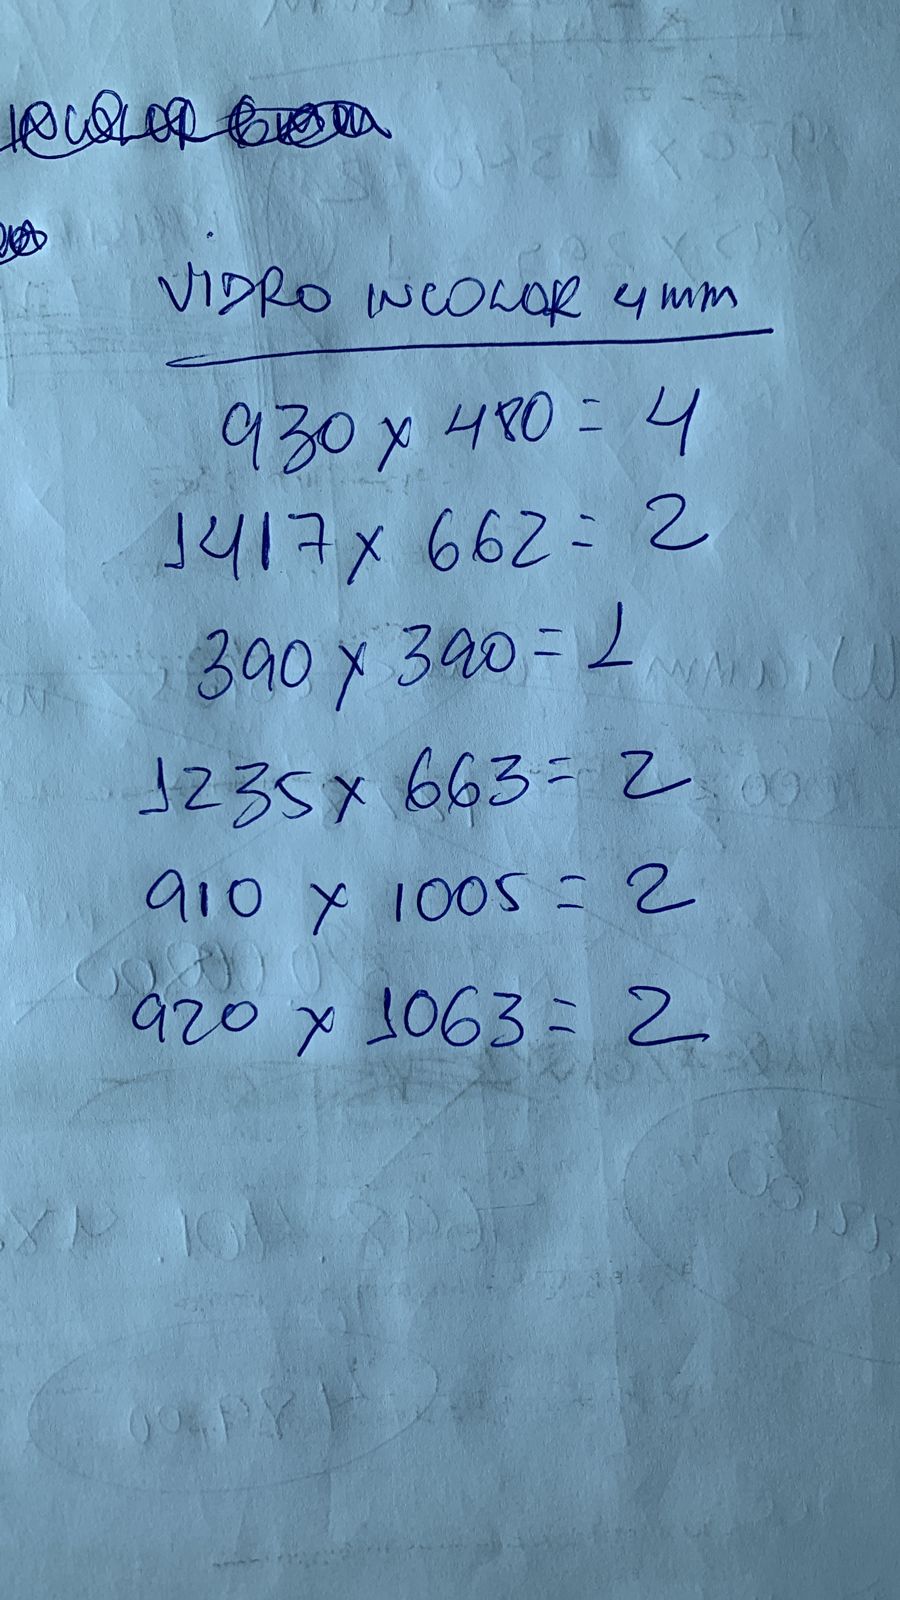 INCOLOR
VIDRO INCOLOR 4mm
930 x 480 = 4
1417 x 662 = 2
390 x 390 = 1
1235 x 663 = 2
910 x 1005 = 2
920 x 1063 = 2